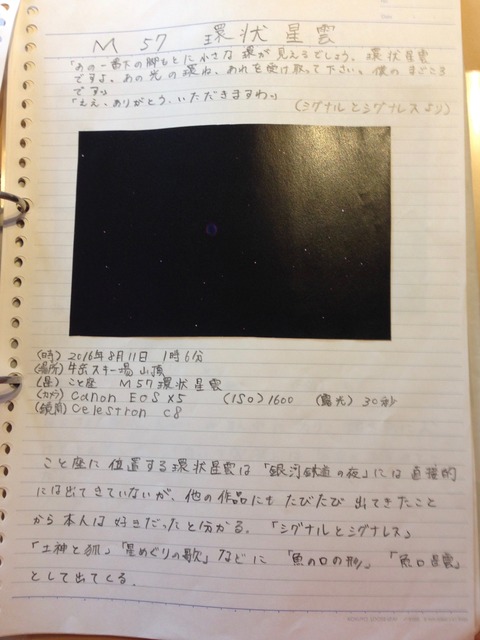 M 57 環状星雲
「あの一番下の脚もとに小さな環が見えるでしょう。環状星雲
ですよ。あの光の環ね、あれを受け取って下さい。僕のまごころ
です」
「ええ、ありがとう、いただきますわ」
(シグナルとシグナレスより)
(時) 2016年8月11日 1時6分
(場所) 牛岳スキー場 山頂
(星) こと座 M57環状星雲
(カメラ) Canon EOS X5 (ISO) 1600 (露光) 30秒
(鏡筒) Celestron C8
こと座に位置する環状星雲は「銀河鉄道の夜」には直接的
には出てきていないが、他の作品にもたびたび出てきたこと
から本人は好きだったと分かる。「シグナルとシグナレス」
「土神と狐」「星めぐりの歌」などに「魚の口の形」「魚口星雲」
として出てくる。